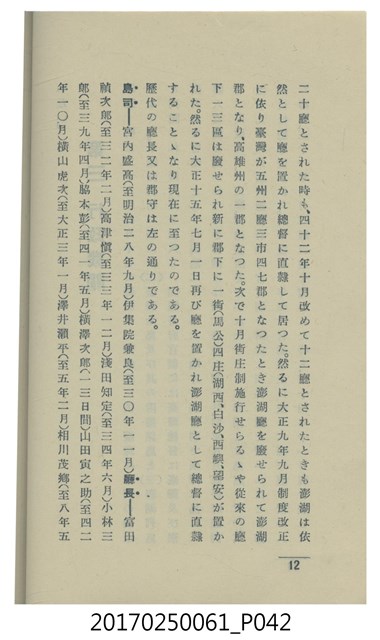 二十廳とされた時も、四十二年十月改めて十二廳とされたときも澎湖は依
然として廳を置かれ總督に直隷して居つた。然るに大正九年九月制度改正
に依り臺灣が五州二廳三市四七郡となつたとき澎湖廳を廢せられて澎湖
郡となり、高雄州の一郡となつた。次で十月街庄制施行せらるゝや從來の廳
下一三區は廢せられ新に郡下に一街(馬公)四庄(湖西、白沙、西嶼、望安)が置か
れた。然るに大正十五年七月一日再び廳を置かれ澎湖廳として總督に直隷
することゝなり現在に至つたのである。
歷代の廳長又は郡守は左の通りである。
島司——宮内盛高(至明治二八年九月)伊集院兼良(至三〇年一一月)廳長——富田
禎次郎(至三二年二月)高津愼(至三三年一二月)淺田知定(至三四年六月)小林三
郎(至三九年四月)脇本彭(至四一年五月)橫澤次郎(一三日間)山田寅之助(至四二
年一〇月)橫山虎次(至大正三年一月)澤井瀨平(至五年二月)相川茂鄕(至八年五
12
20170250061_P042